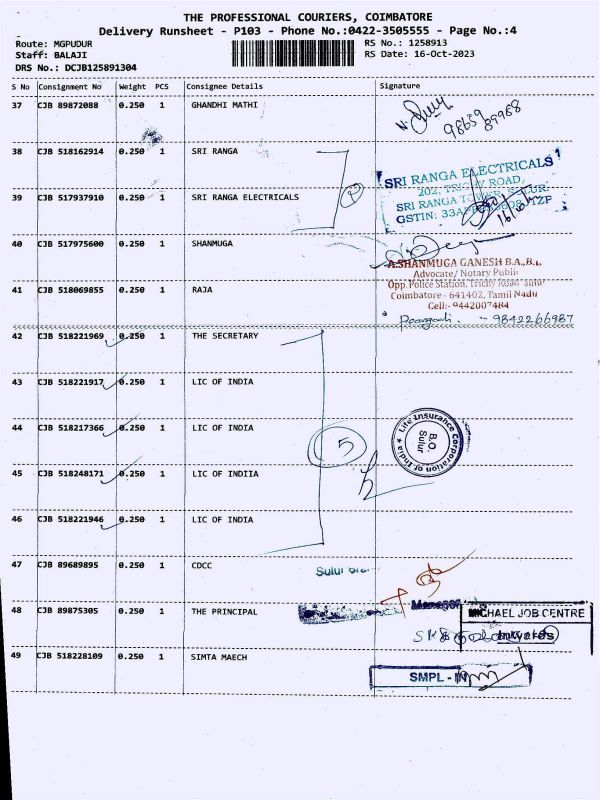 THE PROFESSIONAL COURIERS, COIMBATORE
Delivery Runsheet - P103 - Phone No.:0422-3505555 - Page No.:4
Route: MGPUDUR RS No.: 1258913
Staff: BALAJI RS Date: 16-Oct-2023
DRS No.: DCJB125891304
S No Consignment No Weight PCS Consignee Details Signature
37 CJB 89872088 0.250 1 GHANDHI MATHI
98659 89988
38 CJB 518162914 0.250 1 SRI RANGA
SRI RANGA ELECTRICALS
202, TRICHY ROAD,
39 CJB 517937910 0.250 1 SRI RANGA ELECTRICALS 2
SRI RANGA TOWER, SULUR.
40 CJB 517975600 0.250 1 SHANMUGA
A.SHANMUGA GANESH B.A.,B.L.
Advocate/ Notary Public
Opp. Police Station, Trichy Road Sulur
41 CJB 518069855 0.250 1 RAJA
Coimbatore - 641402, Tamil Nadu
Cell:- 9442007484
9842266987
42 CJB 518221969 0.250 1 THE SECRETARY
43 CJB 518221917 0.250 1 LIC OF INDIA
44 CJB 518217366 0.250 1 LIC OF INDIA 5
Life Insurance Corporation of India
B.O.
Sulur
45 CJB 518248171 0.250 1 LIC OF INDIIA
46 CJB 518221946 0.250 1 LIC OF INDIA
47 CJB 89689895 0.250 1 CDCC
Manager
48 CJB 89875305 0.250 1 THE PRINCIPAL
MICHAEL JOB CENTRE
Inwards
49 CJB 518228109 0.250 1 SIMTA MAECH
SMPL - IN